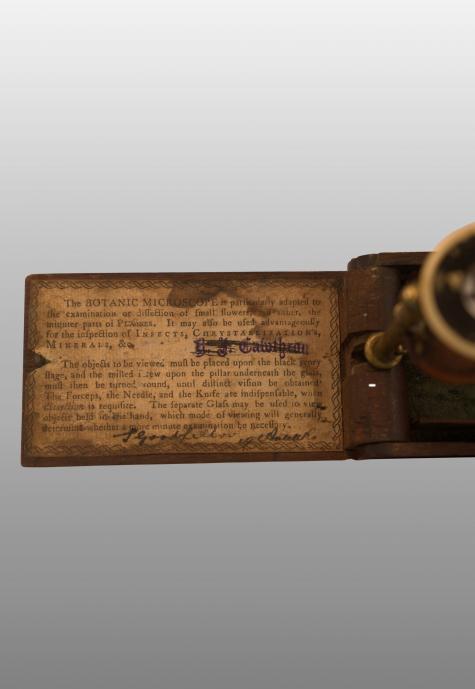 The BOTANIC MICROSCOPE is particularly adapted to
the examination or dissection of small flowers, or rather, the
minuter parts of PLANTS. It may also be used advantageously
for the inspection of INSECTS, CHRYSTALLIZATIONS,
MINERALS, &c.
Cawthran
The objects to be viewed must be placed upon the black ivory
stage, and the milled screw upon the pillar underneath the glass,
must then be turned round, until distinct vision be obtained.
The Forceps, the Needle, and the Knife are indispensable, when
dissection is requisite. The separate Glass may be used to view
objects held in the hand, which mode of viewing will generally
determine whether a more minute examination be necessary.